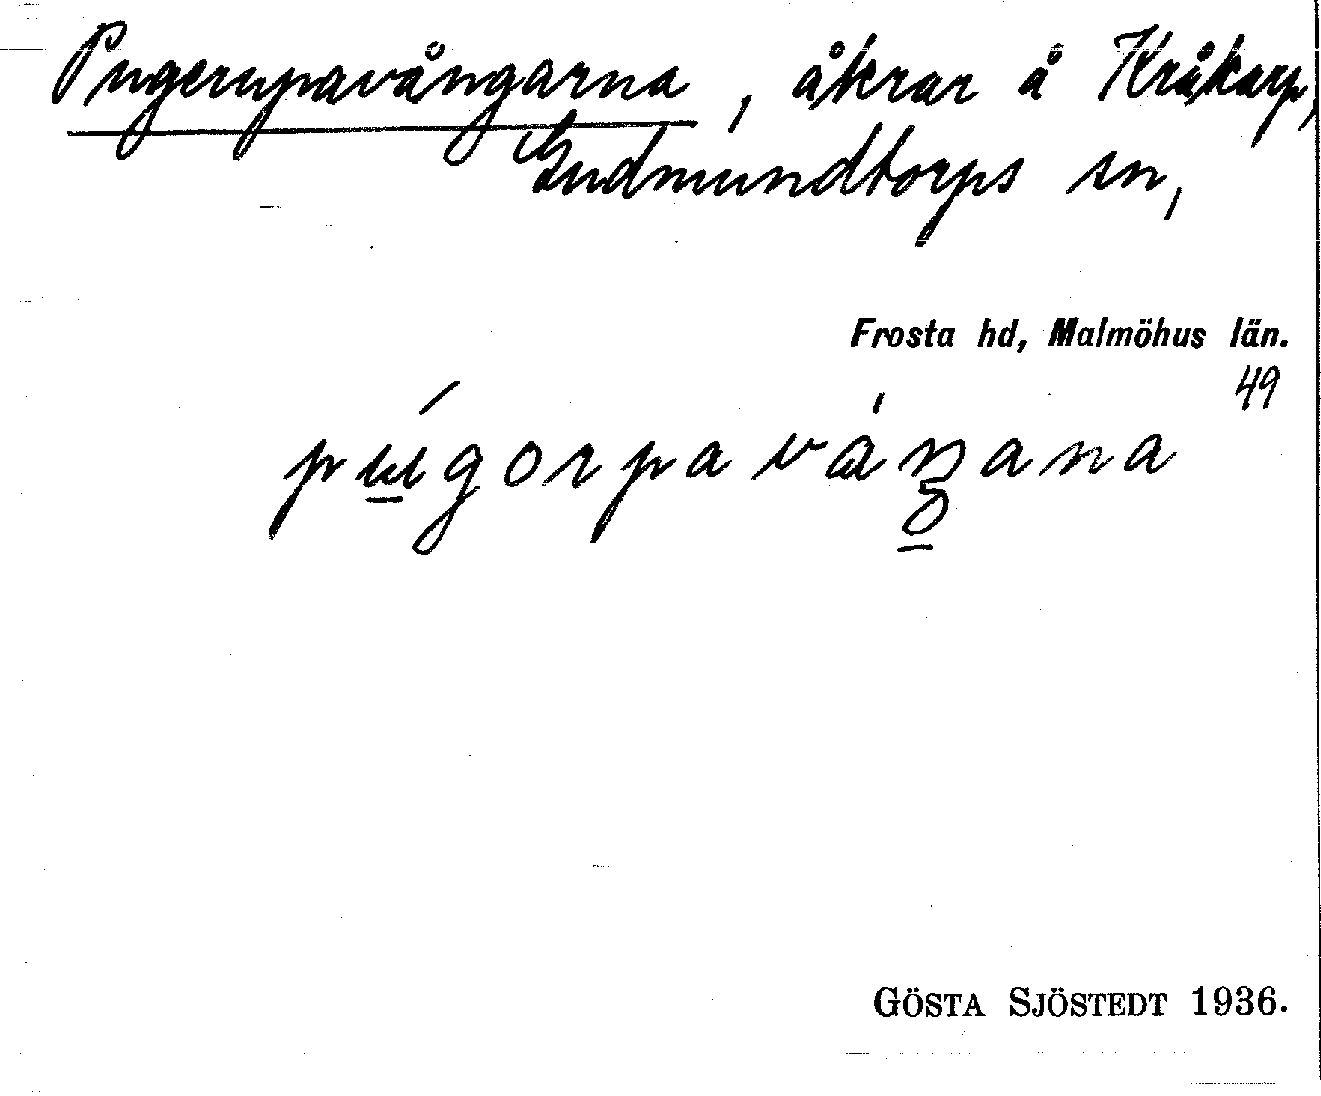 Pugerupavångarna, åkrar å Kråkarp,
Gudmundtorps sn,
Frosta hd, Malmöhus län.
49
pú̲gorpavá𝼇ana
GÖSTA SJÖSTEDT 1936.